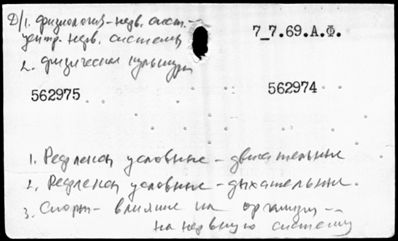 Д/1. физиология - нерв. сист. -
центр. нерв. система
7_7.69.А.Ф.
2. физическая культура
562975
562974
1. Рефлексы условные - двигательные
2. Рефлексы условные - дыхательные.
3. Спорт - влияние на организм -
на нервную систему